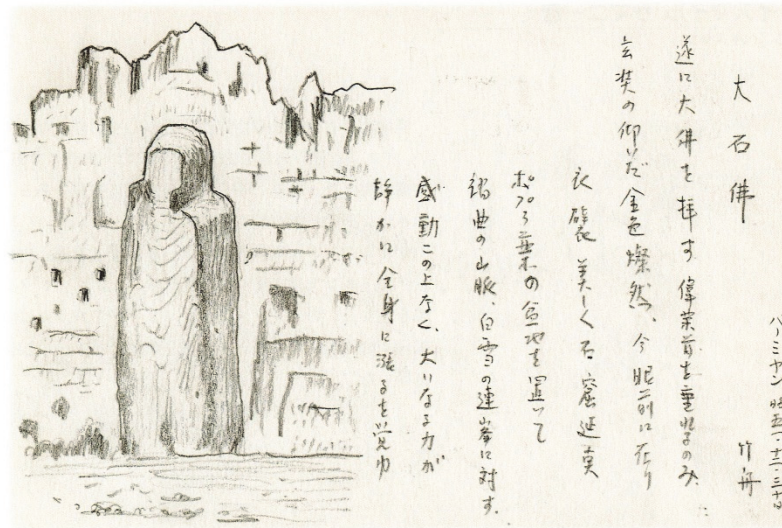 大石佛
バーミヤン
竹舟
遂に大佛を拝す 偉業首を垂れるのみ
玄奘の仰いだ金色燦然、今眼前に在り
衣襞美しく石窟延
ポプラ並木の盆地を置いて
褶曲の山脈、白雪の連峯に対す。
感動この上なく、大いなる力が
静かに全身に漲るを覚ゆ